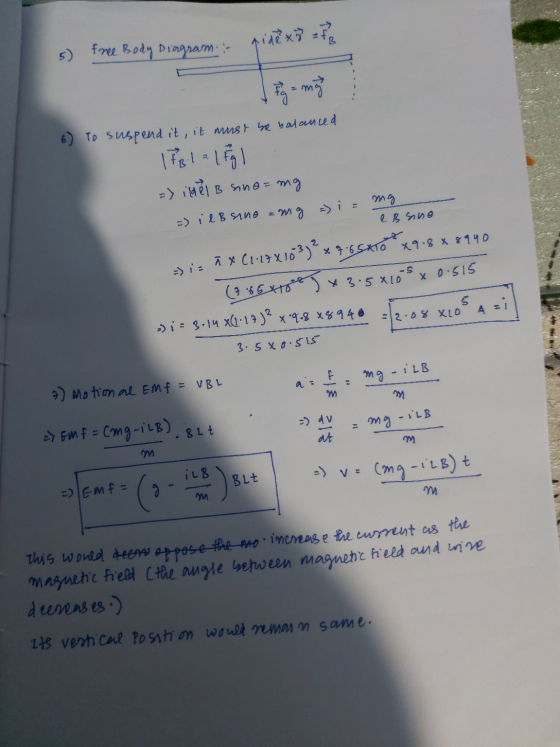 5) Free Body Diagram :-
i d\vec{l} × \vec{r} = \vec{f}_B
\vec{f}_g = m\vec{g}
6) To suspend it, it must be balanced
|\vec{f}_B| = |\vec{f}_g|
=> i|d\vec{l}| B sinθ = mg
=> i l B sinθ = mg => i = mg / l B sinθ
=> i = π × (1.17×10^{-3})^2 × 7.65×10^{-2} × 9.8 × 8940 / (7.65×10^{-2}) × 3.5×10^{-5} × 0.515
=> i = 3.14 × (1.17)^2 × 9.8 × 8940 / 3.5 × 0.515 = 2.08 × 10^5 A = i
7) Motional Emf = VBL
a = f/m = mg - iLB / m
=> Emf = (mg - iLB) / m . BLt
=> dv/dt = mg - iLB / m
=> Emf = (g - iLB/m) BLt
=> v = (mg - iLB) t / m
This would oppose the mo. increase the current as the
magnetic field (the angle between magnetic field and wire
decreases.)
Its vertical position would remain same.